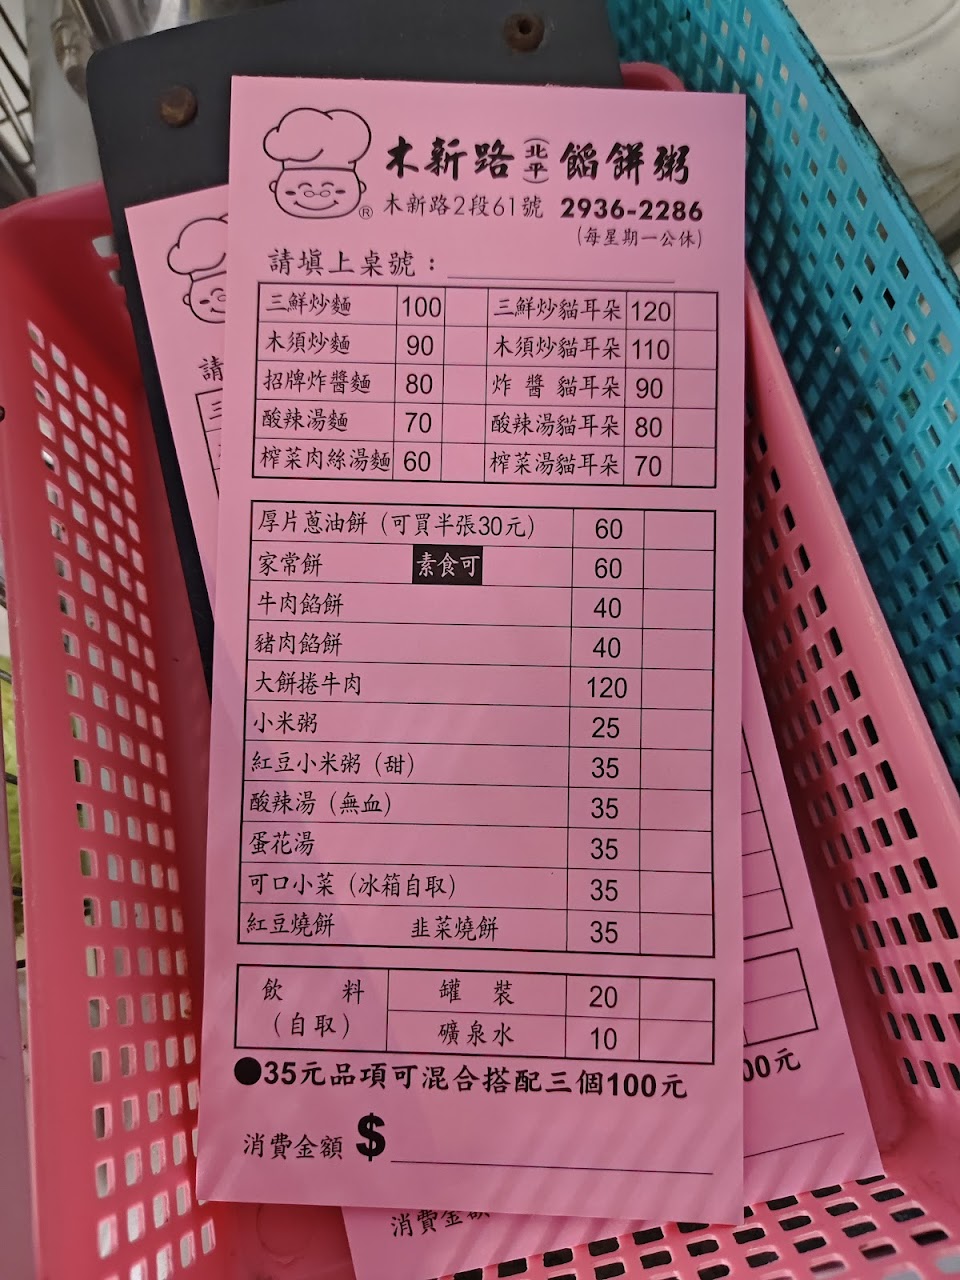 木新路(北平)餡餅粥
® 木新路2段61號 2936-2286
(每星期一公休)
請填上桌號：
三鮮炒麵 100 三鮮炒貓耳朵 120
木須炒麵 90 木須炒貓耳朵 110
招牌炸醬麵 80 炸醬 貓耳朵 90
酸辣湯麵 70 酸辣湯貓耳朵 80
榨菜肉絲湯麵 60 榨菜湯貓耳朵 70
厚片蔥油餅(可買半張30元) 60
家常餅 素食可 60
牛肉餡餅 40
豬肉餡餅 40
大餅捲牛肉 120
小米粥 25
紅豆小米粥(甜) 35
酸辣湯(無血) 35
蛋花湯 35
可口小菜(冰箱自取) 35
紅豆燒餅 韭菜燒餅 35
飲 料 罐 裝 20
(自取) 礦泉水 10
●35元品項可混合搭配三個100元
消費金額 $
請
三
00元
消費金額